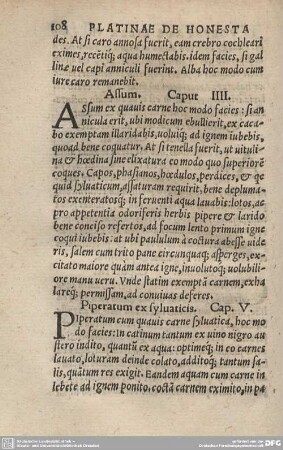 108 PLATINAE DE HONESTA
des. At si caro annosa fuerit, eam crebro cochleari
eximes, recẽtiq; aqua humectabis. idem facies, si gal
linæ uel capi anniculi fuerint. Alba hoc modo cum
iure caro remanebit.
Assum. Caput IIII.
ASsum ex quauis carne hoc modo facies: si an
nicula erit, ubi modicum ebullierit, ex caca‐
bo exemptam illaridabis, uoluiq; ad ignem iubebis,
quoad bene coquatur. At si tenella fuerit, ut uituli‐
na & hœdina sine elixatura eo modo quo superiorẽ
coques. Capos, phasianos, hœdulos, perdices, & qc
quid syluaticum, assaturam requirit, bene deplumá
tos exenteratosq; in feruenti aqua lauabis: lotos, ac
pro appetentia odoriferis herbis pipere & larido
bene conciso refertos, ad focum lento primum igne
coqui iubebis: at ubi paululum à coctura abesse uide
ris, salem cum trito pane circunquaq; asperges, ex‐
citato maiore quàm antea igne, inuolutoq; uolubili‐
ore manu ueru. Vnde statim exemptã carnem, exha
lareq; permissam, ad conuiuas deferes.
Piperatum ex syluaticis. Cap. V.
PIperatum cum quauis carne syluatica, hoc mo
do facies: In catinum tantum ex uino nigro au
stero indito, quantũ ex aqua: optimeq; in eo carnes
lauato, loturam deinde colato, additoq; tantum sa‐
lis, quãtum res exigit. Eandem aquam cum carne in
lebete ad ignem ponito. coctã carnem eximito, in pa